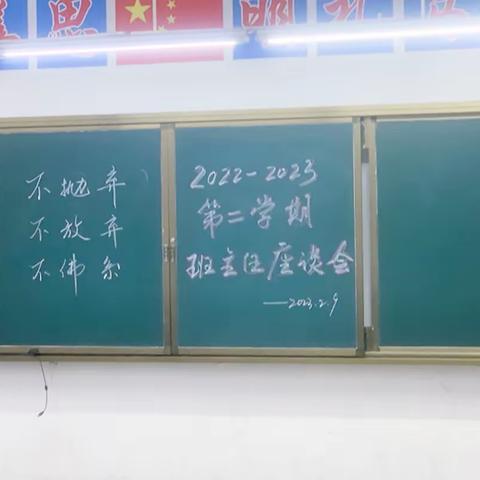 思
明
礼
不抛弃
不放弃
不佛系
2022-2023
第二学期
班主任座谈会
——2023.2.9